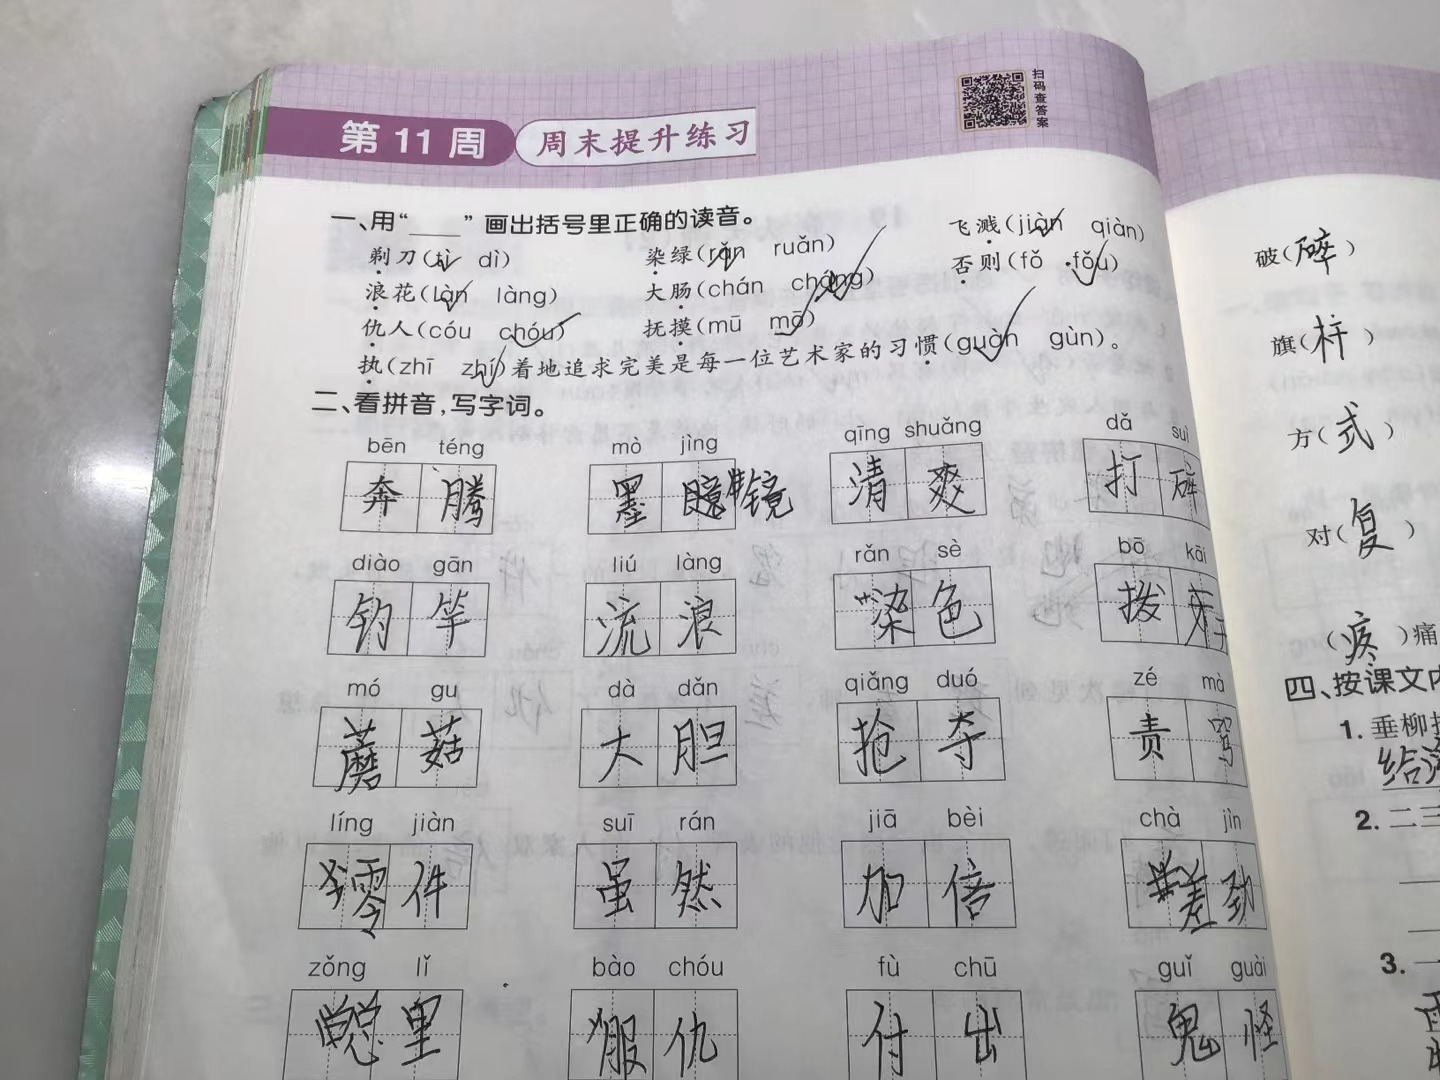 第11周 周末提升练习
扫码查答案
一、用“____”画出括号里正确的读音。
剃刀(tì dì) 染绿(rǎn ruǎn) 飞溅(jiàn qiàn)
浪花(làn làng) 大肠(chán cháng) 否则(fǒ fǒu)
仇人(cóu chóu) 抚摸(mū mō)
执(zhī zhí)着地追求完美是每一位艺术家的习惯(guàn gùn)。
二、看拼音,写字词。
bēn téng mò jìng qīng shuǎng dǎ suì
奔腾 墨镜 清爽 打碎
diào gān liú làng rǎn sè bō kāi
钓竿 流浪 染色 拨开
mó gu dà dǎn qiǎng duó zé mà
蘑菇 大胆 抢夺 责骂
líng jiàn suī rán jiā bèi chà jìn
零件 虽然 加倍 差劲
zǒng lǐ bào chóu fù chū guǐ guài
里 服仇 付出 鬼怪
破(碎)
旗(杆)
方(式)
对(复)
(疼)痛
四、按课文内
1. 垂柳
给
2. 二三
3. 一